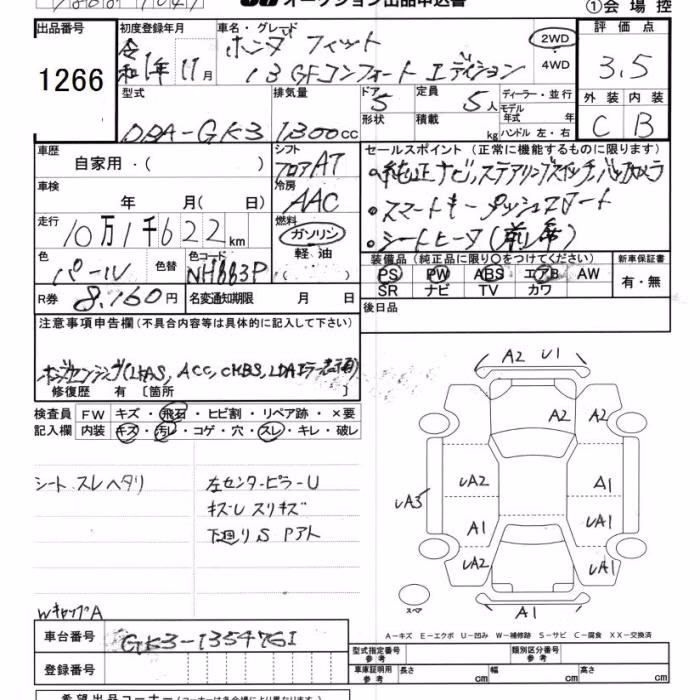 オークション出品申込書
①会場控
出品番号
1266
初度登録年月
令和1年11月
車名・グレード
ホンダ フィット
13GFコンフォートエディション
2WD
4WD
評価点
3.5
外装 内装
C B
型式
DBA-GK3
排気量
1300cc
ドア
5
形状
定員
5人
積載 kg
ディーラー・並行
モデル年式 年
ハンドル 左・右
車歴
自家用・(
シフト
フロアAT
車検
年 月(日)
冷房
AAC
走行
10万1千622km
燃料
ガソリン
軽油
( )
セールスポイント (正常に機能するものに限ります)
・純正ナビ、ステアリングスイッチ、バックカメラ
・スマートキー プッシュスタート
・シートヒータ(前席)
色
パール
色替
色コード
NH883P
装備品 (純正品に限り○をつけてください)
PS PW ABS エアB AW
SR ナビ TV カワ
新車保証書
有・無
R券
8,160円
名変通知期限 月 日
後日品
注意事項申告欄 (不具合内容等は具体的に記入して下さい)
ホンダセンシング(LKAS, ACC, CMBS, LDAエラー表示有)
修復歴 有 〔箇所
検査員記入欄
FW キズ・飛石・ヒビ割・リペア跡・×要
内装 キズ・汚レ・コゲ・穴・スレ・キレ・破レ
シート スレ ヘタリ
左センターピラーU
キズU スリキズ
下廻りS Pアト
WキャップA
A2 U1
A2
A2
UA2
A1
UA3
A1
UA1
UA2
UA1
A1
スペア
A-キズ E-エクボ U-凹み W-補修跡 S-サビ C-腐食 XX-交換済
車台番号
GK3-1354761
登録番号
型式指定番号
参考
類別区分番号
参考
車庫証明用
参考
長さ cm
幅 cm
高さ cm
希望出品コーナー